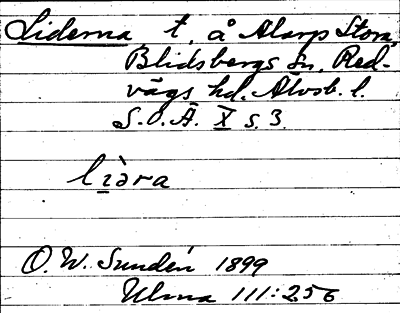 Liderna t. å Alarp Stora,
Blidsbergs sn, Red-
vägs hd. Älvsb. l.
S.O.Ä. X s. 3.
lìəra
O. W. Sundén 1899
Ulma 111:256